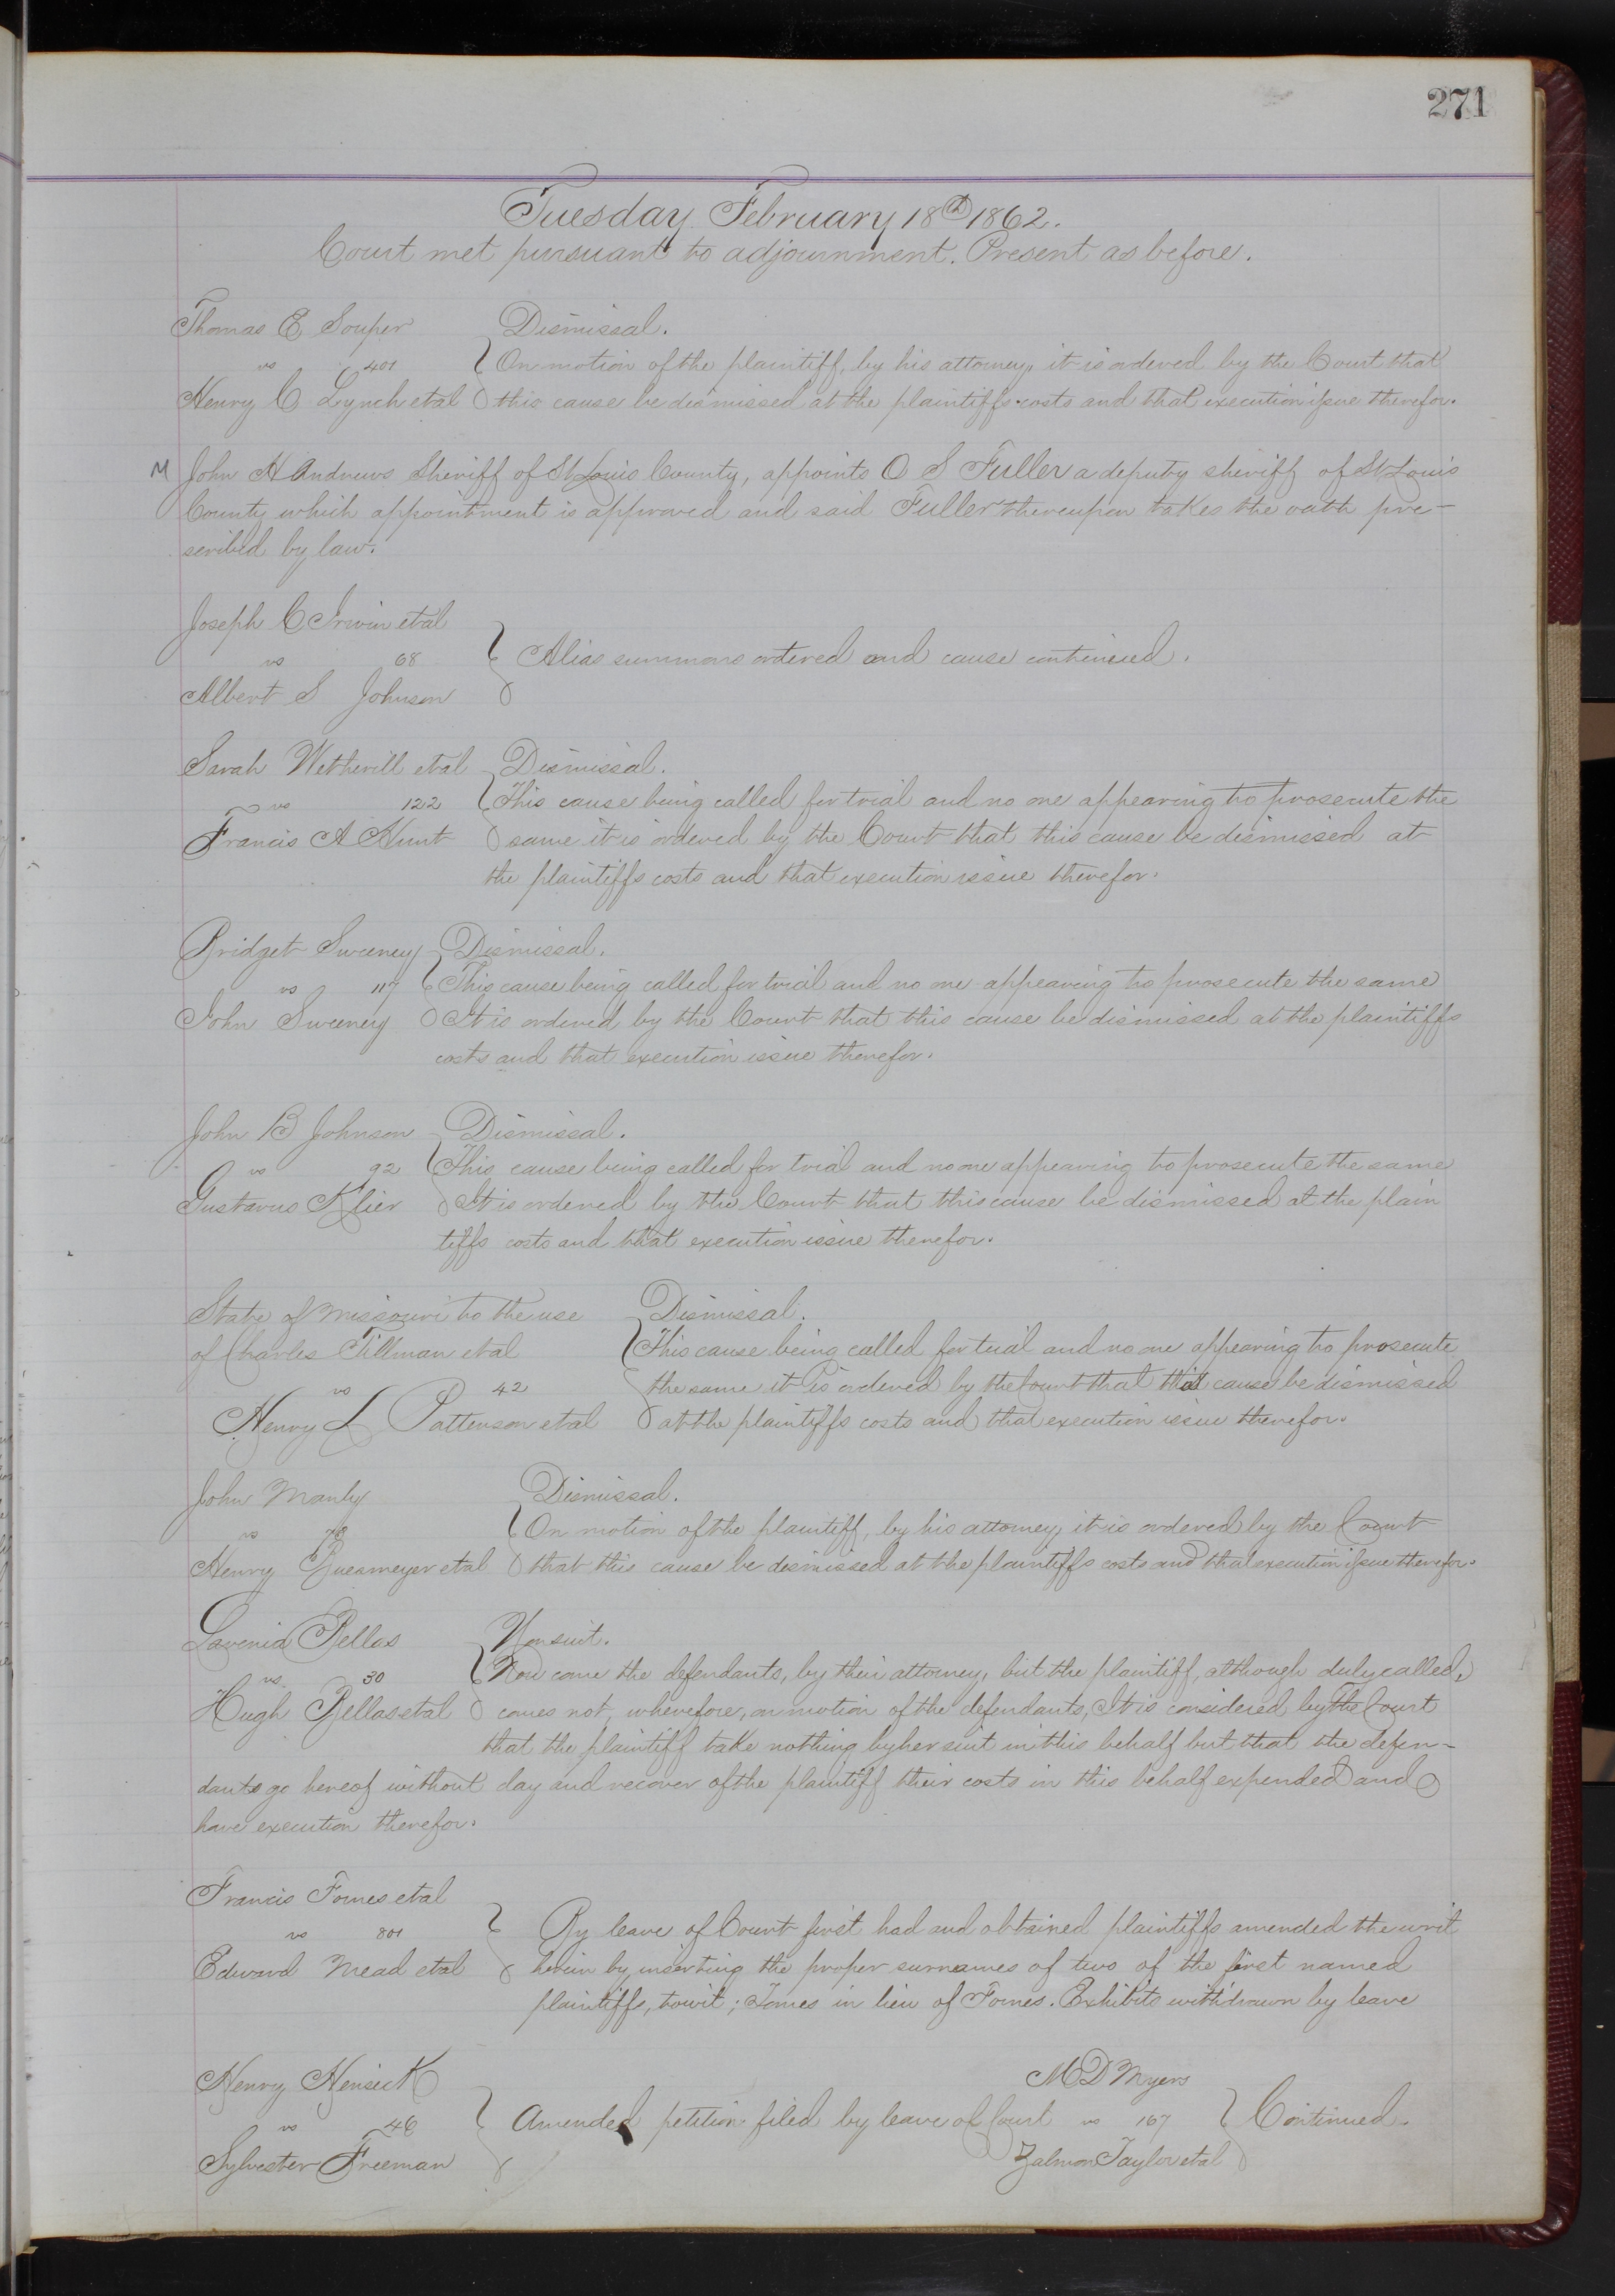 271
Tuesday February 18th 1862.
Court met pursuant to adjournment. Present as before.
Thomas E Souper Dismissal.
vs 401 On motion of the plaintiff, by his attorney, it is ordered by the Court that
Henry C Lynch etal this cause be dismissed at the plaintiffs costs and that execution issue therefor.
M John H Andrews Sheriff of St Louis County, appoints O S Fuller a deputy sheriff of St Louis
County which appointment is approved and said Fuller thereupon takes the oath pre-
scribed by law.
Joseph C Irwin etal
vs 68 Alias summons ordered and cause continued.
Albert S Johnson
Sarah Wetherill etal Dismissal.
vs 122 This cause being called for trial and no one appearing to prosecute the
Francis A Hunt same it is ordered by the Court that this cause be dismissed at
the plaintiffs costs and that execution issue therefor.
Bridget Sweeney Dismissal.
vs 117 This cause being called for trial and no one appearing to prosecute the same
John Sweeney It is ordered by the Court that this cause be dismissed at the plaintiffs
costs and that execution issue therefor.
John B Johnson Dismissal.
vs 92 This cause being called for trial and no one appearing to prosecute the same
Gustavus Klier It is ordered by the Court that this cause be dismissed at the plain
tiffs costs and that execution issue therefor.
State of Missouri to the use Dismissal.
of Charles Tillman etal This cause being called for trial and no one appearing to prosecute
vs 42 the same it is ordered by the Court that this cause be dismissed
Henry L Patterson etal at the plaintiffs costs and that execution issue therefor.
John Manly Dismissal.
vs On motion of the plaintiff, by his attorney, it is ordered by the Court
Henry etal that this cause be dismissed at the plaintiffs costs and that execution issue therefor.
Lavenia Bellas Nonsuit.
vs 30 Now come the defendants, by their attorney, but the plaintiff, although duly called,
Hugh Bellas etal comes not, wherefore, on motion of the defendants, It is considered by the Court
that the plaintiff take nothing by her suit in this behalf but that the defen-
dants go hereof without day and recover of the plaintiff their costs in this behalf expended and
have execution therefor.
Francis Fomes etal
vs 801 By leave of Court first had and obtained plaintiffs amended the writ
Edward Mead etal herein by inserting the proper surnames of two of the first named
plaintiffs, towit; Tomes in lieu of Fomes. Exhibits withdrawn by leave
Henry Hensick M D Myers
vs 46 Amended petition filed by leave of Court vs 167 Continued.
Sylvester Freeman Zalmon Taylor etal